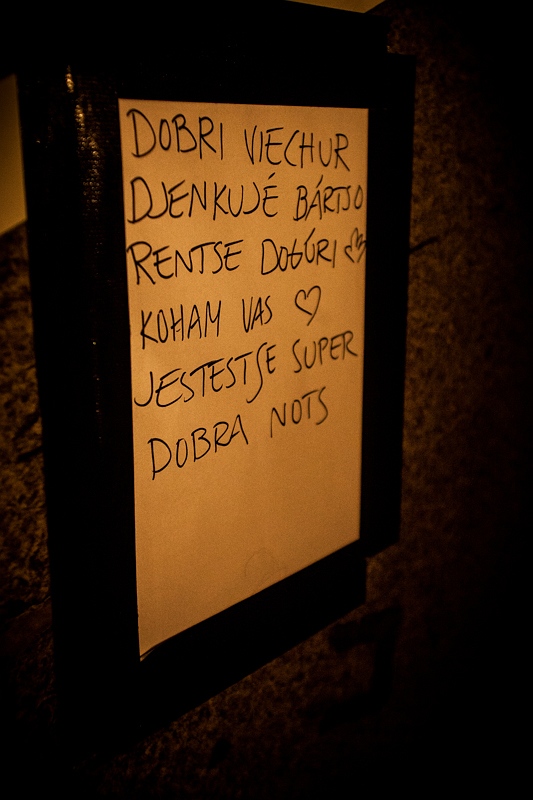 DOBRI VIECHUR
DJENKUJÉ BÁRTSO
RENTSE DOGÚRI
KOHAM VAS ♡
JESTESTSE SUPER
DOBRA NOTS